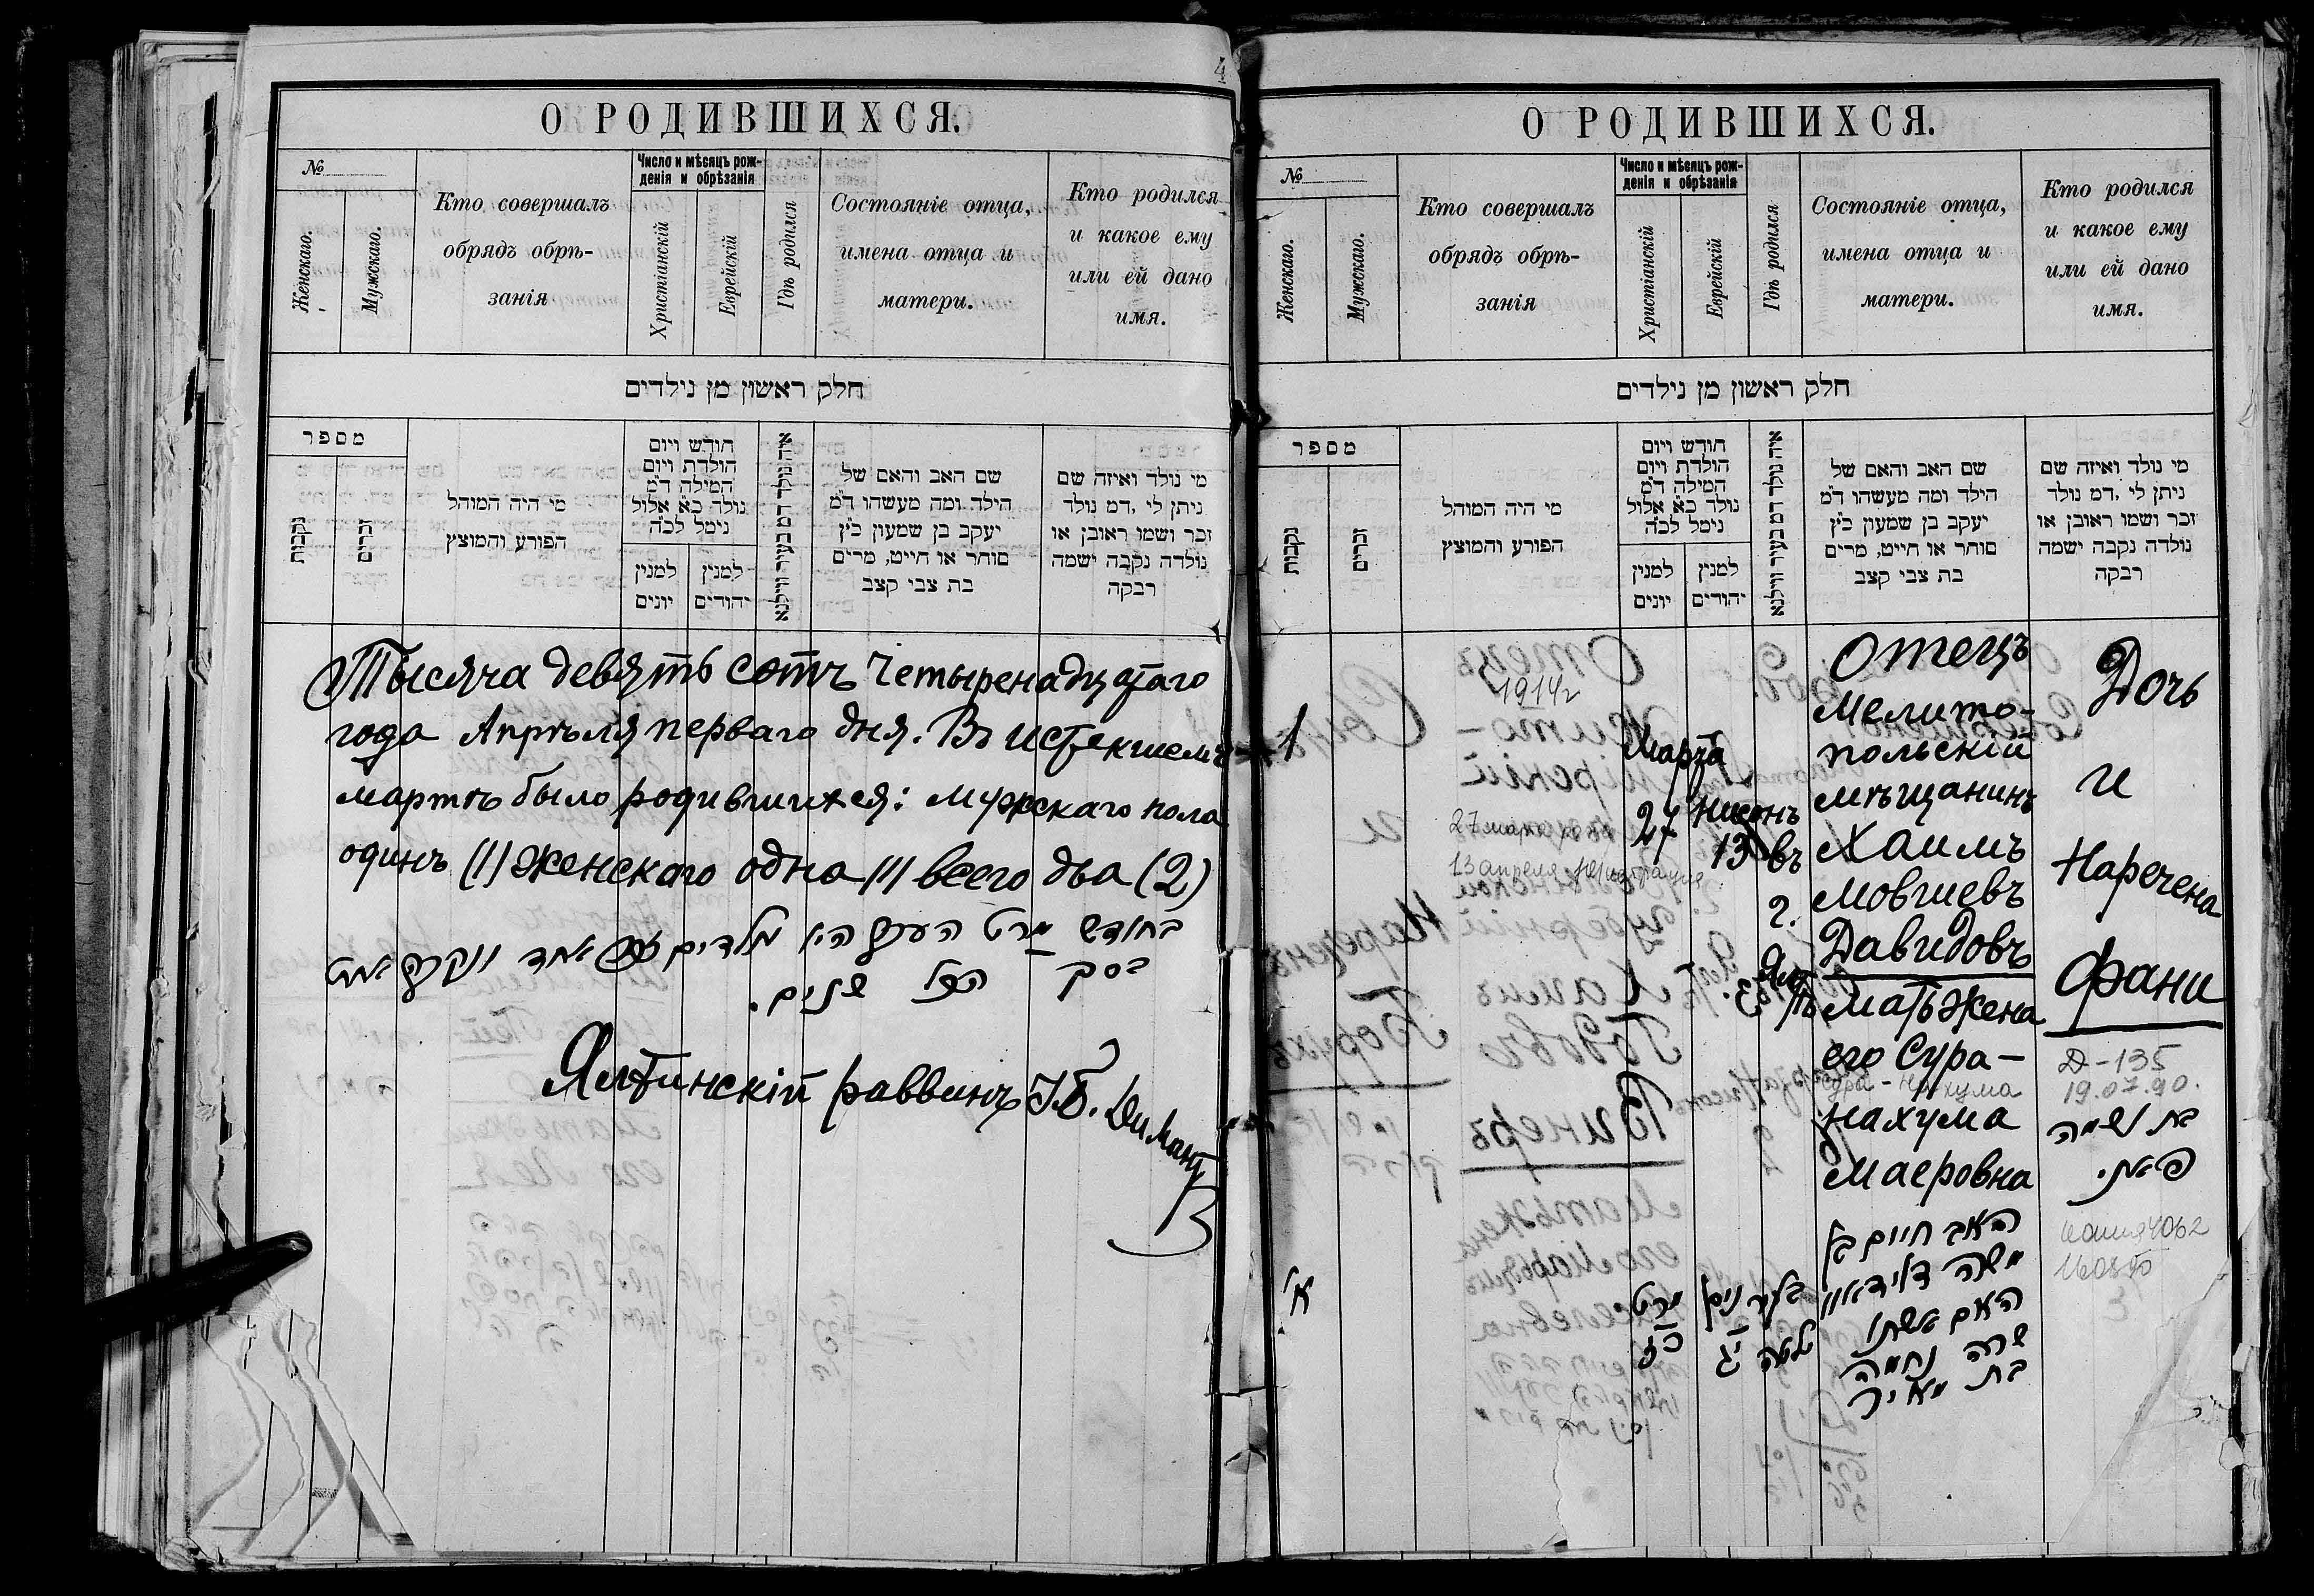 4
О РОДИВШИХСЯ.
№
Женскаго.
Мужскаго.
Кто совершалъ
обрядъ обрѣ-
занія
Число и мѣсяцъ рож-
денія и обрѣзанія
Христіанскій
Еврейскій
Гдѣ родился
Состояніе отца,
имена отца и
матери.
Кто родился
и какое ему
или ей дано
имя.
חלק ראשון מן נילדים
מספר
נקבות
זכרים
מי היה המוהל
הפורע והמוצץ
חודש ויום
הולדת ויום
המילה ד״מ
נולד כ״א אלול
נימל לכ״ה
למנין
יונים
למנין
יהודים
איה נולד דמ בעיר ווילנא
שם האב והאם של
הילד ומה מעשהו ד״מ
יעקב בן שמעון כ״ץ
סוחר או חייט, מרים
בת צבי קצב
מי נולד ואיזה שם
ניתן לי, דמ נולד
זכר ושמו ראובן או
נולדה נקבה ישמה
רבקה
Тысяча девять сотъ четыренадцатаго
года Апрѣля перваго дня. Въ истекшемъ
мартѣ было родившихся: мужскаго пола
одинъ (1) женскаго одна (1) всего два (2)
בחודש מרט העבר היו נולדים זכר אחד ונקבה אחת
בסך הכל שנים.
Ялтинскій раввинъ І.Б. Димантъ
О РОДИВШИХСЯ.
№
Женскаго.
Мужскаго.
Кто совершалъ
обрядъ обрѣ-
занія
Число и мѣсяцъ рож-
денія и обрѣзанія
Христіанскій
Еврейскій
Гдѣ родился
Состояніе отца,
имена отца и
матери.
Кто родился
и какое ему
или ей дано
имя.
חלק ראשון מן נילדים
מספר
נקבות
זכרים
מי היה המוהל
הפורע והמוצץ
חודש ויום
הולדת ויום
המילה ד״מ
נולד כ״א אלול
נימל לכ״ה
למנין
יונים
למנין
יהודים
איה נולד דמ בעיר ווילנא
שם האב והאם של
הילד ומה מעשהו ד״מ
יעקב בן שמעון כ״ץ
סוחר או חייט, מרים
בת צבי קצב
מי נולד ואיזה שם
ניתן לי, דמ נולד
זכר ושמו ראובן או
נולדה נקבה ישמה
רבקה
1
א׳
1914г
27 марта
13 апреля регистрация
Марта
27
מרט
כז
Нисонъ
13
ניסן
יג
въ
г.
Ялтѣ
בעיר
יאלטה
Отецъ
Мелито-
польскій
мѣщанинъ
Хаимъ
Мовшевъ
Давидовъ
Мать жена
его Сура-
Сура-Нахума
Нахума
Маеровна
האב חיים בן
משה דאוידאוו
האם אשתו
שרה נחמה
בת מאיר
Дочь
и
Наречена
Фани
Д-135
19.07.90.
בת ושמה
פאני